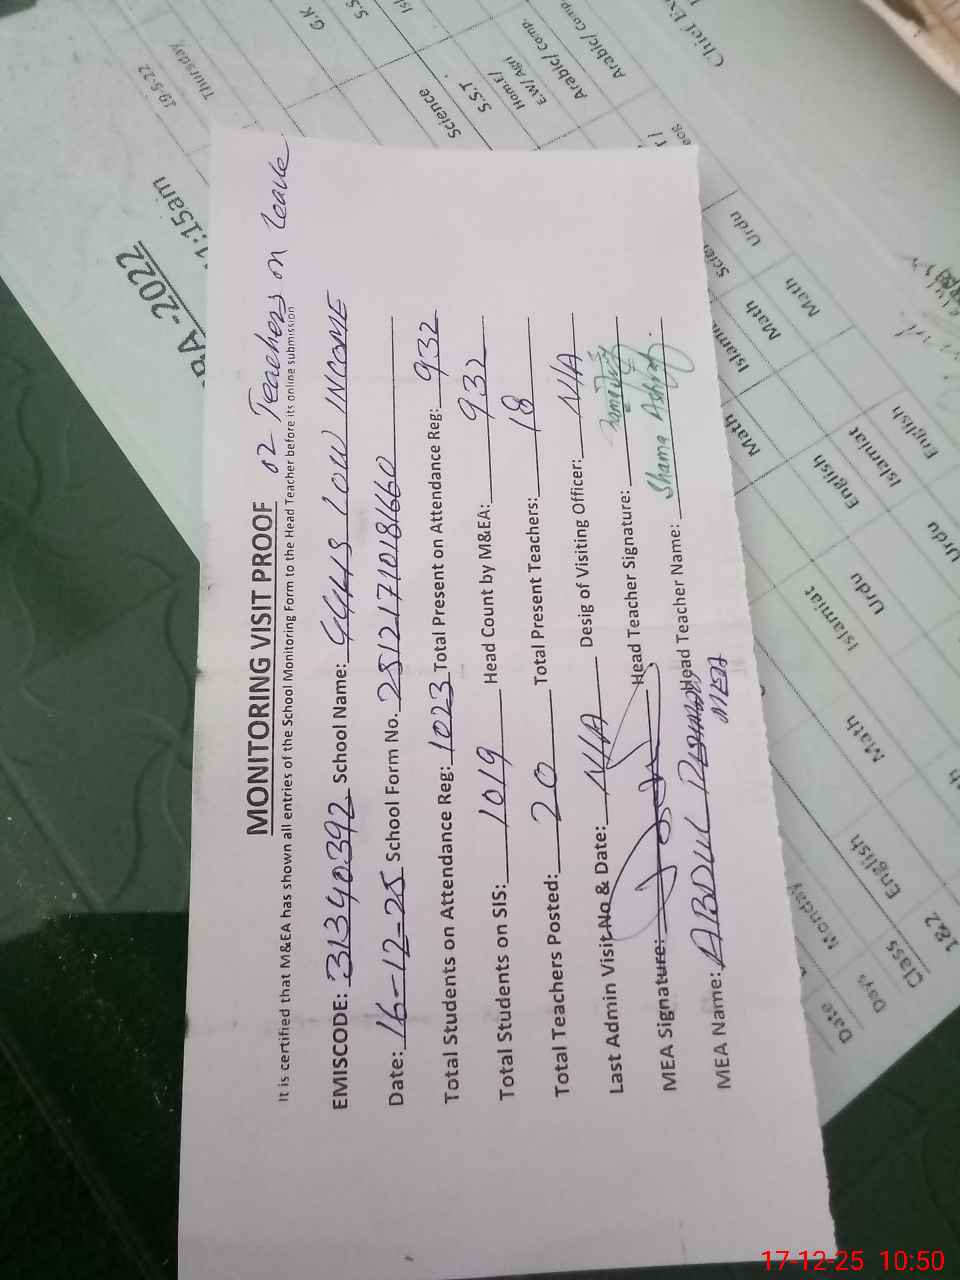 MONITORING VISIT PROOF
02 Teachers on Leave
It is certified that M&EA has shown all entries of the School Monitoring Form to the Head Teacher before its online submission
EMISCODE: 31340392 School Name: GGHS LOW INCOME
Date: 16-12-25 School Form No. 25121710181660
Total Students on Attendance Reg: 1023 Total Present on Attendance Reg: 932
Total Students on SIS: 1019 Head Count by M&EA: 932
Total Teachers Posted: 20 Total Present Teachers: 18
Last Admin Visit No & Date: N/A Desig of Visiting Officer: N/A
MEA Signature: Head Teacher Signature:
MEA Name: ABDUL REHMAN Head Teacher Name: Shama Ashraf.
MEA
-2022
1:15am
19-5-22
Thursday
G.K
S.S
Science
S.S.T
Hom.E/
E.W/ Agri
Arabic/ comp.
Arabic/ comp.
Chief Ex
Urdu
Math
Math
Math
English
Islamiat
English
Islamiat
Urdu
Urdu
Math
English
Monday
Date
Days
Class
1&2
17-12-25 10:50